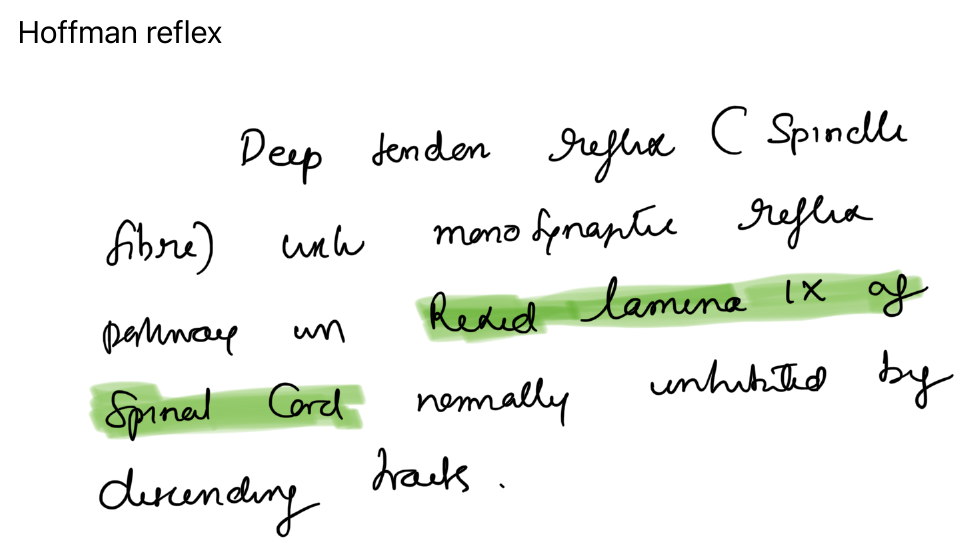 Hoffman reflex
Deep tendon reflex ( Spindle
fibre) with monosynaptic reflex
pathway in Rexed lamina IX of
Spinal Cord normally inhibited by
descending tracts.